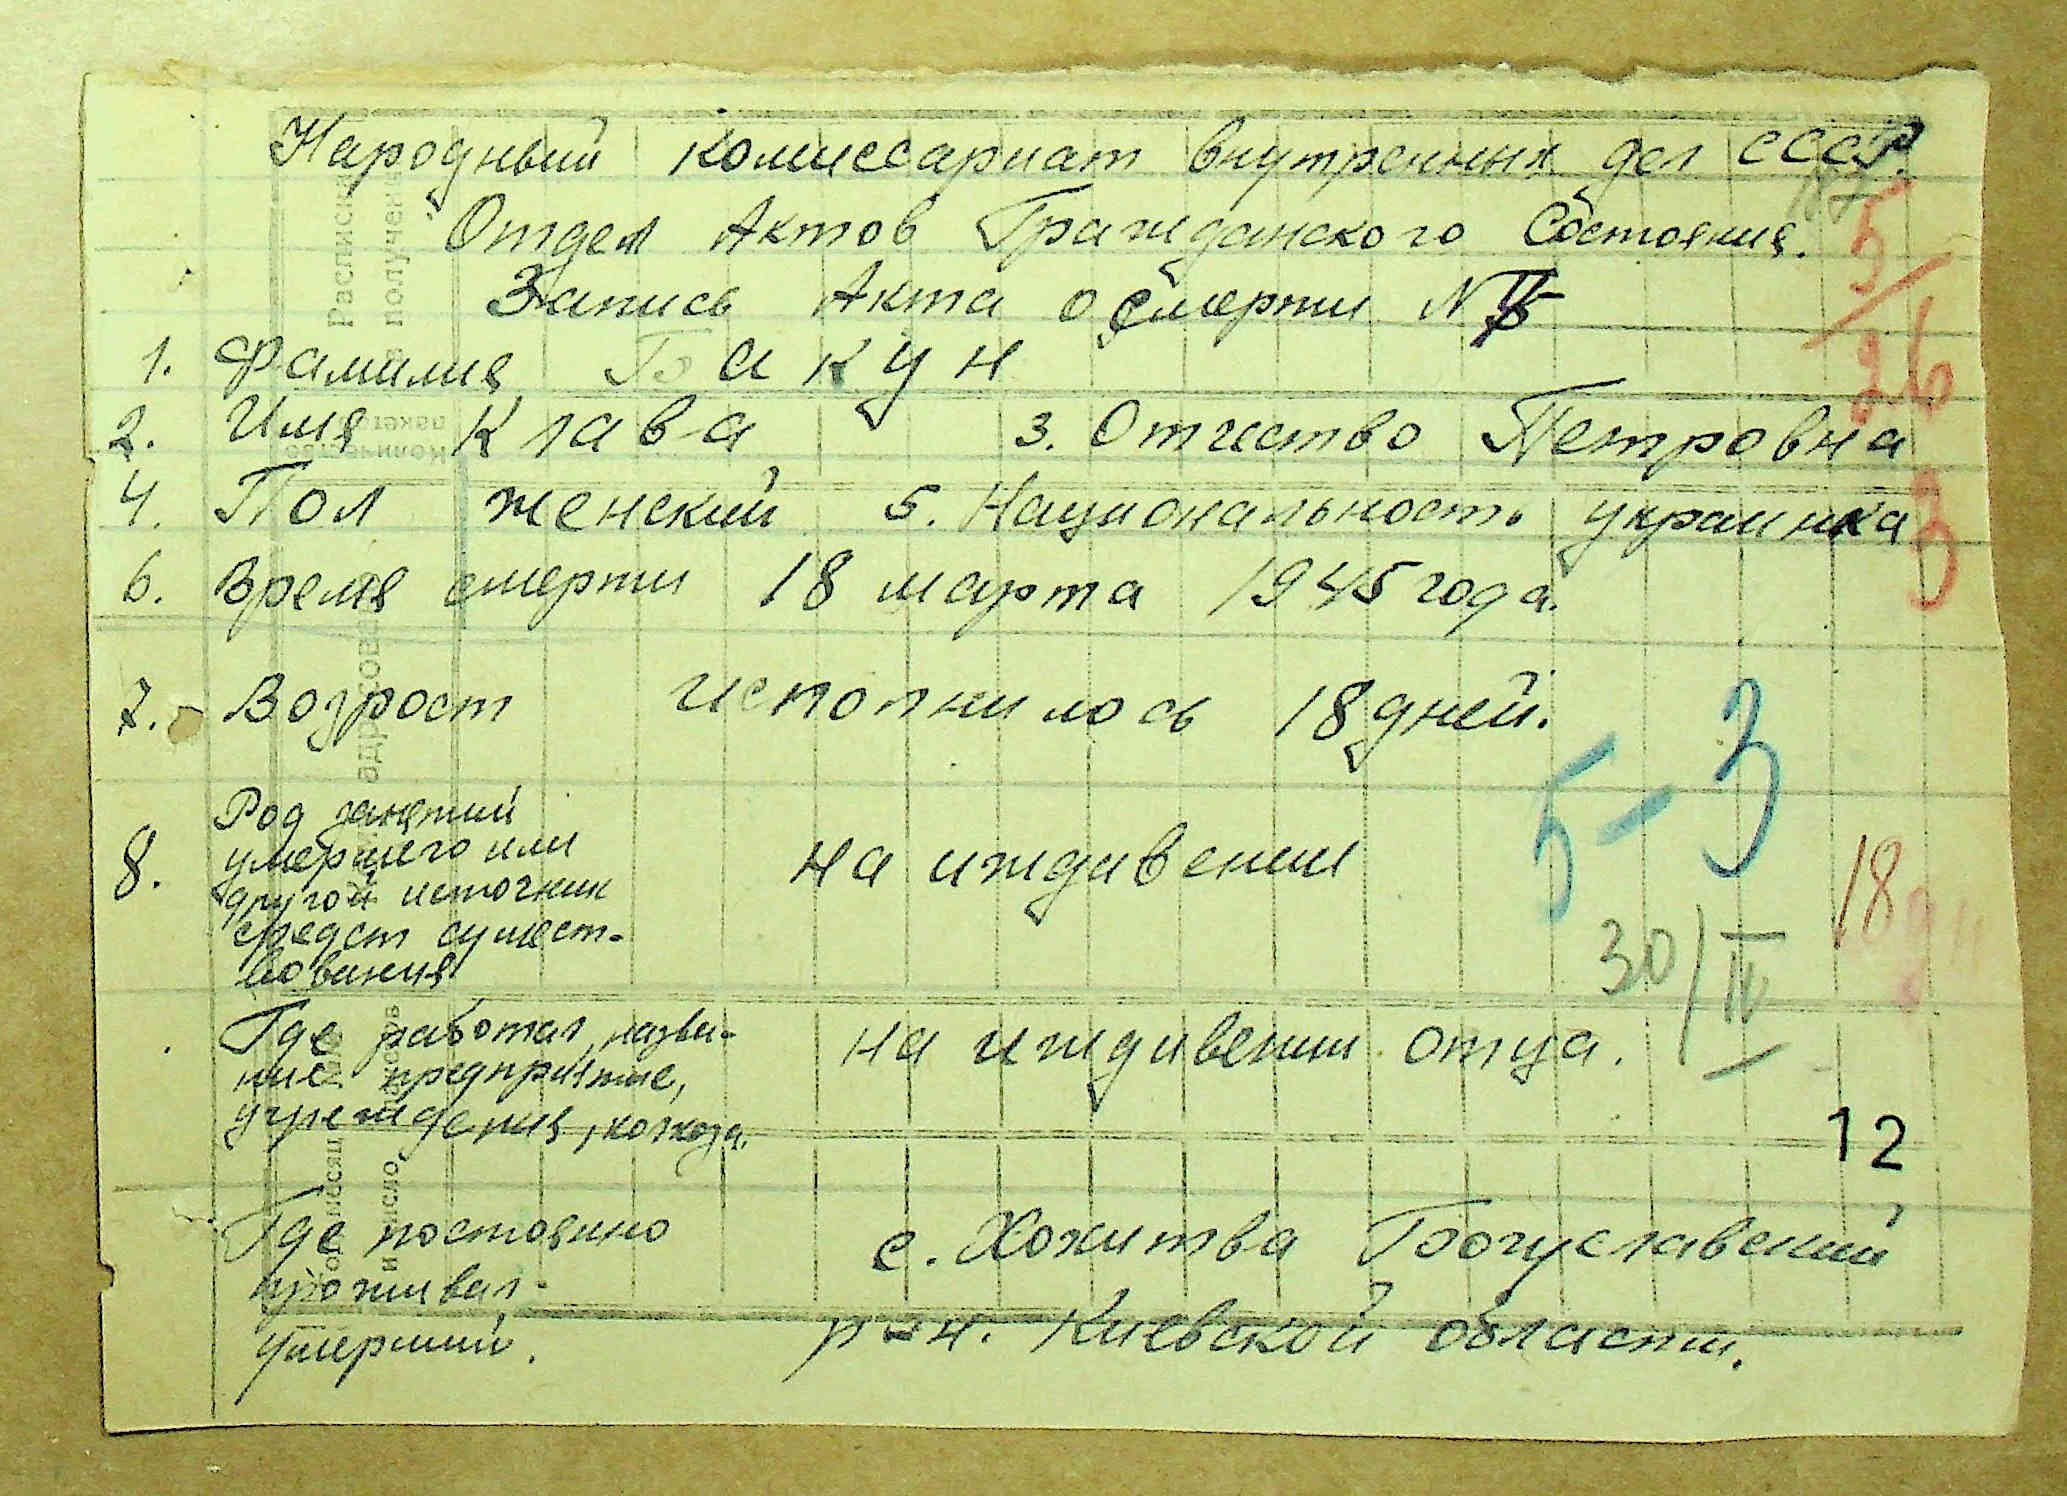 Народный комиссариат внутренних дел СССР.
Отдел Актов Гражданского Состояния.
Запись Акта о смерти №
5/26
1. Фамилия Бакун
2. Имя Клава 3. Отчество Петровна
4. Пол женский 5. Национальность украинка
3
6. Время смерти 18 марта 1945 года.
7. Возрост исполнилось 18 дней.
5-3
Род занятий
умершего или
8. другой источник на иждивении
средст сущест-
вования
18 дн
30/IV
Где работал, назва-
ние предприятие, на иждивении отца.
учреждения, колхоза.
12
Где постоянно с. Хохитва Богуславский
проживал
умерший. р-н. Киевской области.
Расписка
в получен
Количество
пакетов
адресов
и число